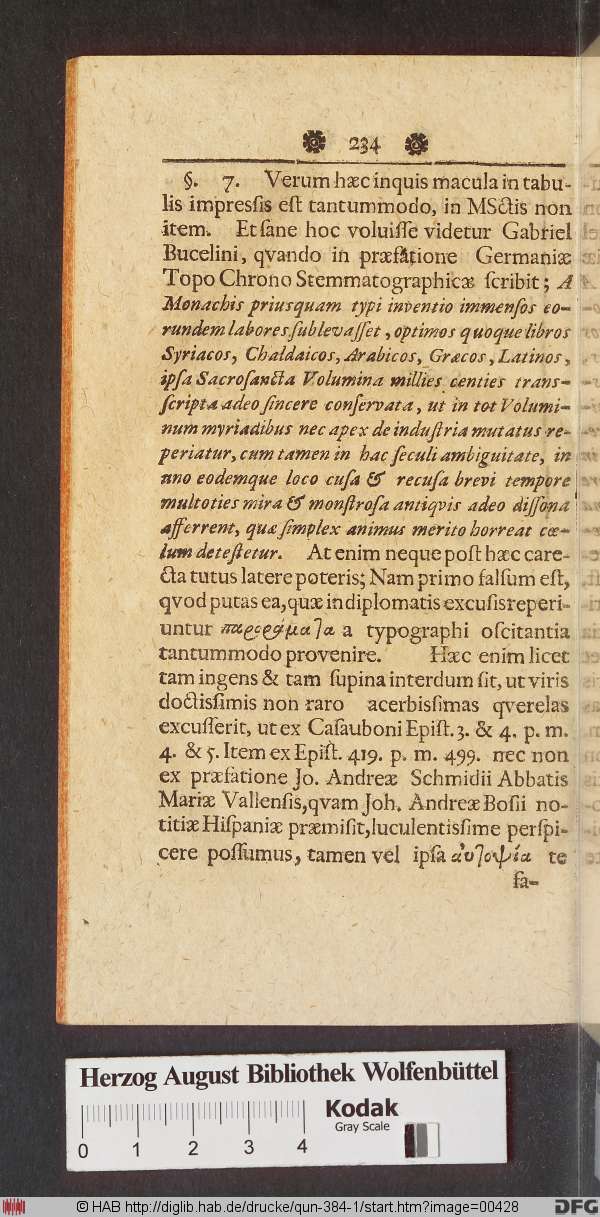 234
§. 7. Verum hæc inquis macula in tabu-
lis impreſsis eſt tantummodo, in MSctis non
item. Et ſane hoc voluiſſe videtur Gabriel
Bucelini, qvando in præfatione Germaniæ
Topo Chrono Stemmatographicæ ſcribit; A
Monachis priusquam typi inventio immenſos eo-
rundem labores ſublevaſſet, optimos quoque libros
Syriacos, Chaldaicos, Arabicos, Græcos, Latinos,
ipſa Sacroſancta Volumina millies centies trans-
ſcripta adeo ſincere conſervata, ut in tot Volumi-
num myriadibus nec apex de induſtria mutatus re-
periatur, cum tamen in hac ſeculi ambiguitate, in
uno eodemque loco cuſa & recuſa brevi tempore
multoties mira & monſtroſa antiqvis adeo diſſona
afferrent, quæ ſimplex animus merito horreat cœ-
lum deteſtetur. At enim neque poſt hæc care-
cta tutus latere poteris; Nam primo falſum eſt,
qvod putas ea, quæ in diplomatis excuſis reperi-
untur παροράμαλα a typographi oſcitantia
tantummodo provenire. Hæc enim licet
tam ingens & tam ſupina interdum ſit, ut viris
doctiſsimis non raro acerbiſsimas qverelas
excuſſerit, ut ex Caſauboni Epiſt. 3. & 4. p. m.
4. & 5. Item ex Epiſt. 419. p. m. 499. nec non
ex præfatione Jo. Andreæ Schmidii Abbatis
Mariæ Vallenſis, qvam Joh. Andreæ Boſii no-
titiæ Hiſpaniæ præmiſit, luculentiſsime perſpi-
cere poſſumus, tamen vel ipſa αὐλοψία te
fa-
Herzog August Bibliothek Wolfenbüttel
Kodak
Gray Scale
0 1 2 3 4
© HAB http://diglib.hab.de/drucke/qun-384-1/start.htm?image=00428
DFG